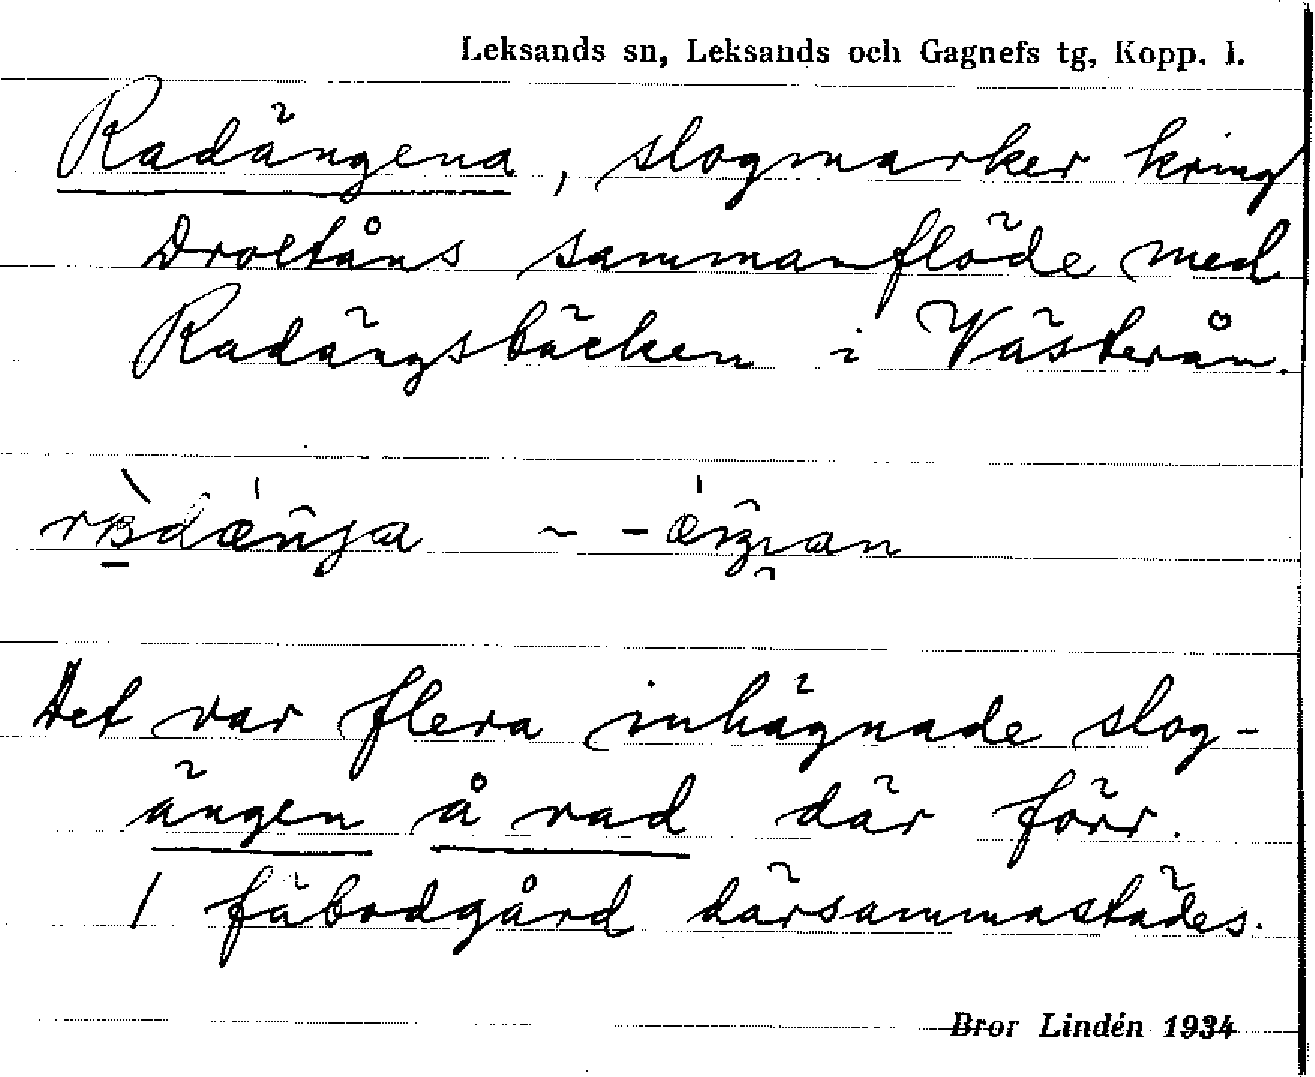 Leksands sn, Leksands och Gagnefs tg, Kopp. l.
Radängena, slogmarker kring
Droltåns sammanflöde med
Radängsbäcken i Västerån.
Det var flera inhägnade slog-
ängen å rad där förr.
1 fäbodgård därsammastädes.
Bror Lindén 1934